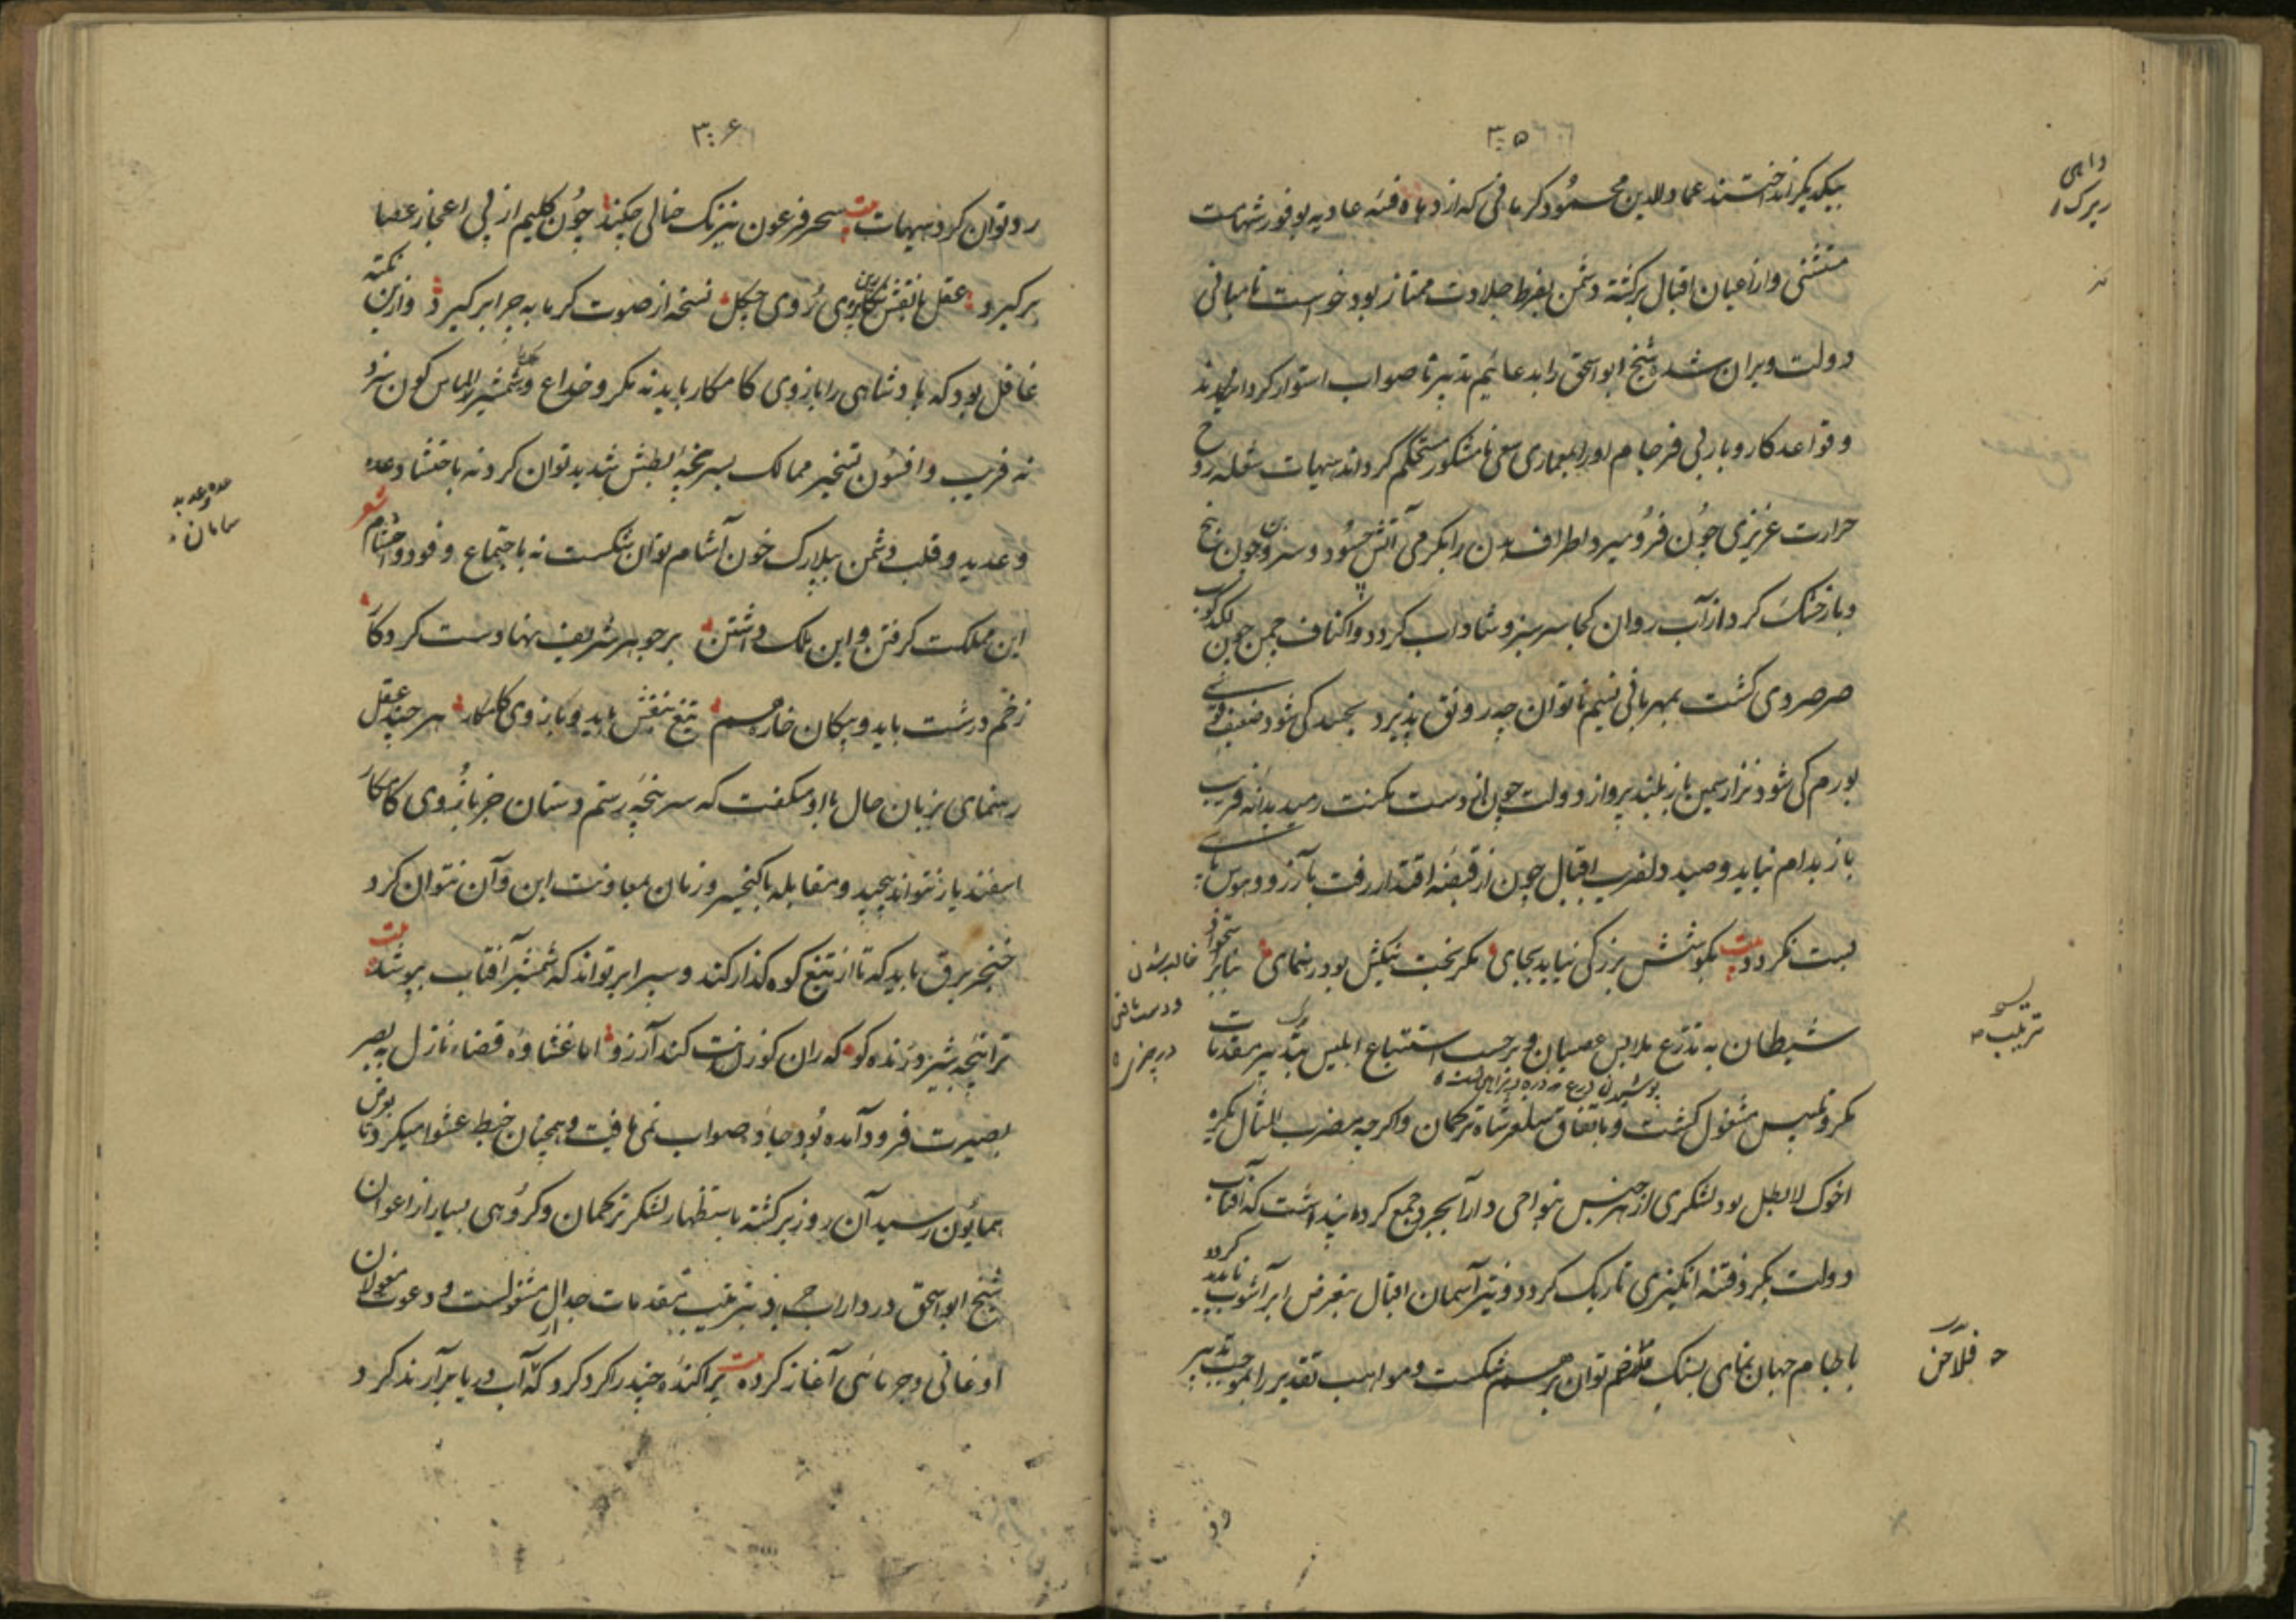 ۳۰۵
بیکدیگر انداختند عماد الدین محمود کرمانی که از دهاة فتنه عادیه بوفور شهامت
مستثنی و از اعیان اقبال برکشته دشمن بفرط جلادت ممتاز بود خواست تا مبانی
دولت ویران شده شیخ ابواسحق را بدعائیم تدبیر نا صواب استوار کرداند
و قواعد کار و بار بی فرجام او را بمعماری سعی نامشکور مستحکم کرداند هیهات شعله روح
حرارت غریزی چون فرو میرد اطراف بدن را بکرمی آتش حسود و سرو بن چون بیخ
و بار خشک کرد از آب روان کجا سرسبز و شاداب کردد و اکناف چمن چون لکدکوب
صرصر وی کشت بمهربانی نسیم ناتوان چه رونق پذیرد بجهد کی شود ضعیف قوی
بورم کی شود نزار سمین باز بلند پرواز دولت چون از دست مکنت رمید بدانه فریب
باز بدام نیاید و صید دلفریب اقبال چون از قبضه اقتدار رفت بآرزو و هوس پای
بست نکردد بیت بکوشش بزرکی نیاید بجای مکر بخت نیکش بود رهنمای بنابر استحواذ
شیطان به تذرع ملابس عصیان و برحسب استتباع ابلیس بتدبیر مقدمات
مکر و تلبیس مشغول کشت و باتفاق سلغر شاه ترکمان واکرچه بمضرب المثال مکره
اخوک لا بطل بود لشکری از هر جنس بنواحی دارابجرد جمع کرد پنداشت که آفتاب
دولت بکرد فتنه انکیزی تاریک کردد و نیر آسمان اقبال بتعرض ابر آشوب ناپدید کردد
با جام جهان نمای بسنک توان برهم شکست و مواهب تقدیر را بموجب تدبیر
داهی
زیرک
غالب شدن
و دست یافتن
در چیزی
پوشیدن درع
فلاخن
۳۰۶
رد توان کرد هیهات بیت سحر فرعون نیرنک خالی چکند چون کلیم از پی اعجاز عصا
برکیرد عقل با نقش روی چکل نسخه از صوت کرمابه چرا برکیرد و ازین نکته
غافل بود که پادشاهی را بازوی کامکار باید نه مکر و خداع و شمشیر الماس کون سزد
نه فریب و افسون تسخیر ممالک بسرپنجه بطش شدید توان کرد نه باحتشاد عده
و عدید و قلب دشمن ببلارک خون آشام توان شکست نه باجتماع وفود و احشام شعر
این مملکت کرفتن و این ملک داشتن بر جوهر شریف نهادست کردکار
زخم درشت باید و پیکان خاره سم تیغ بنفش باید و بازوی کامکار هر چند عقل
رهنمای بزبان حال با او میکفت که سرپنجه رستم دستان جز بازوی کامکار
اسفندیار نتواند پیچید و مقابله با کیخسرو زمان بمعاونت این و آن نتوان کرد
خنجر برق باید که تا از تیغ کوه کذار کند و سپر ابر تواند که شمشیر آفتاب بپوشد بیت
ترا پنجه شیر درنده کو که ران کوزنت کند آرزو اما غشاوه قضاء نازل ببصر
بصیرت فرود آمده بود جاده صواب نمی یافت و همچنان خبط عشوا میکرد تا بوی
همایون رسید آن روز برکشته باستظهار لشکر ترکمان و کروهی بسیار از اعوان
شیخ ابواسحق در داراب جرد بترتیب مقدمات جدال مشغولست و دعوت مغولان
اوغانی و جرمائی آغاز کرده بیت پراکنده چند را کرد کرد که از آب دریا برآرند کرد
عده و عدید
سامان